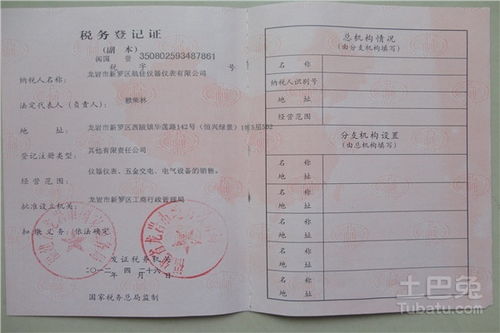 税务登记证
(副 本)
闽国 登 350802593487861
税 字 号
纳税人名称: 龙岩市新罗区航佳仪器仪表有限公司
法定代表人（负责人）: 赖荣林
地 址: 龙岩市新罗区西陂镇华莲路142号（恒兴绿景）1栋3层302
登记注册类型: 其他有限责任公司
经营范围: 仪器仪表、五金交电、电气设备的销售。
批准设立机关: 龙岩市新罗区工商行政管理局
扣缴义务: 依法确定
发证税务机关
二〇一二 年 四 月 二十六
国家税务总局监制
总机构情况
(由分支机构填写)
名 称
纳税人识别号
地 址
经营范围
分支机构设置
(由总机构填写)
名 称
地 址
名 称
地 址
名 称
地 址
名 称
地 址
名 称
地 址
土巴兔
Tubatu.com